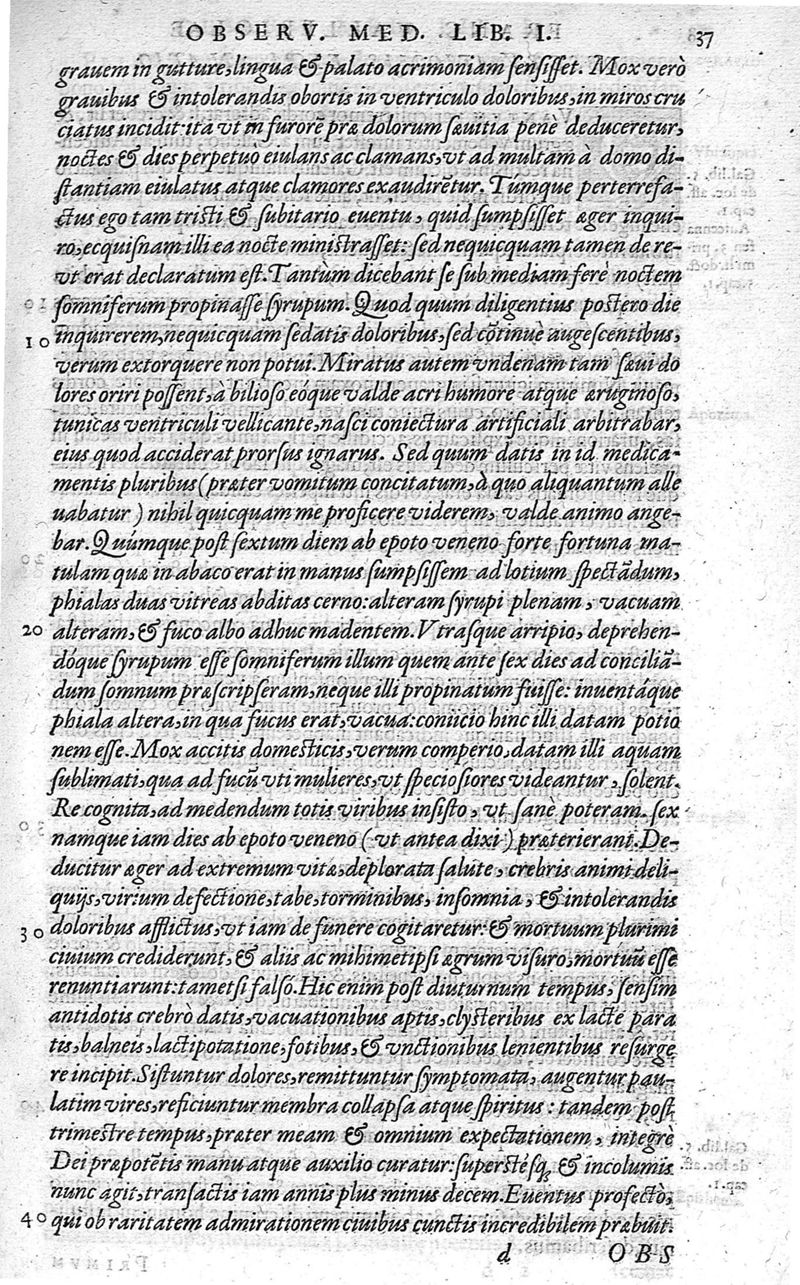 OBSERV. MED. LIB. I. 37
grauem in gutture, lingua & palato acrimoniam sensisset. Mox verò
grauibus & intolerandis obortis in ventriculo doloribus, in miros cru
ciatus incidit: ita vt in furorē præ dolorum sæuitia penè deduceretur,
noctes & dies perpetuo eiulans ac clamans, vt ad multam à domo di-
stantiam eiulatus atque clamores exaudirētur. Túmque perterrefa-
ctus ego tam tristi & subitario euentu, quid sumpsisset æger inqui-
ro, ecquisnam illi ea nocte ministrasset: sed nequicquam tamen de re-
vt erat declaratum est. Tantùm dicebant se sub mediam ferè noctem
somniferum propinasse syrupum. Quod quum diligentius postero die
10 inquirerem, nequicquam sedatis doloribus, sed cōtinuè augescentibus,
verum extorquere non potui. Miratus autem vndenam tam sæui do
lores oriri possent, à bilioso eóque valde acri humore atque æruginoso,
tunicas ventriculi vellicante, nasci coniectura artificiali arbitrabar,
eius quod acciderat prorsus ignarus. Sed quum datis in id medica-
mentis pluribus (præter vomitum concitatum, à quo aliquantum alle
uabatur) nihil quicquam me proficere viderem, valde animo ange-
bar. Quúmque post sextum diem ab epoto veneno forte fortuna ma-
tulam quæ in abaco erat in manus sumpsissem ad lotium spectādum,
phialas duas vitreas abditas cerno: alteram syrupi plenam, vacuam
20 alteram, & fuco albo adhuc madentem. Vtrasque arripio, deprehen-
dóque syrupum esse somniferum illum quem ante sex dies ad conciliā-
dum somnum præscripseram, neque illi propinatum fuisse: inuentáque
phiala altera, in qua fucus erat, vacua: coniicio hinc illi datam potio
nem esse. Mox accitis domesticis, verum comperio, datam illi aquam
sublimati, qua ad fucū vti mulieres, vt speciosiores videantur, solent.
Re cognita, ad medendum totis viribus insisto, vt sanè poteram. sex
namque iam dies ab epoto veneno (vt antea dixi) præterierant. De-
ducitur æger ad extremum vitæ, deplorata salute, crebris animi deli-
quijs, virium defectione, tabe, torminibus, insomnia, & intolerandis
30 doloribus afflictus, vt iam de funere cogitaretur: & mortuum plurimi
ciuium crediderunt, & aliis ac mihimetipsi ægrum visuro, mortuū esse
renuntiarunt: tametsi falsó. Hic enim post diuturnum tempus, sensim
antidotis crebrò datis, vacuationibus aptis, clysteribus ex lacte para
tis, balneis, lactipotatione, fotibus, & vnctionibus lenientibus resurge
re incipit. Sistuntur dolores, remittuntur symptomata, augentur pau-
latim vires, reficiuntur membra collapsa atque spiritus: tandem post
trimestre tempus, præter meam & omnium expectationem, integrè
Dei præpotētis manu atque auxilio curatur: superstésq; & incolumis
nunc agit, transactis iam annis plus minus decem. Euentus profectò,
40 qui ob raritatem admirationem ciuibus cunctis incredibilem præbuit.
d OBS